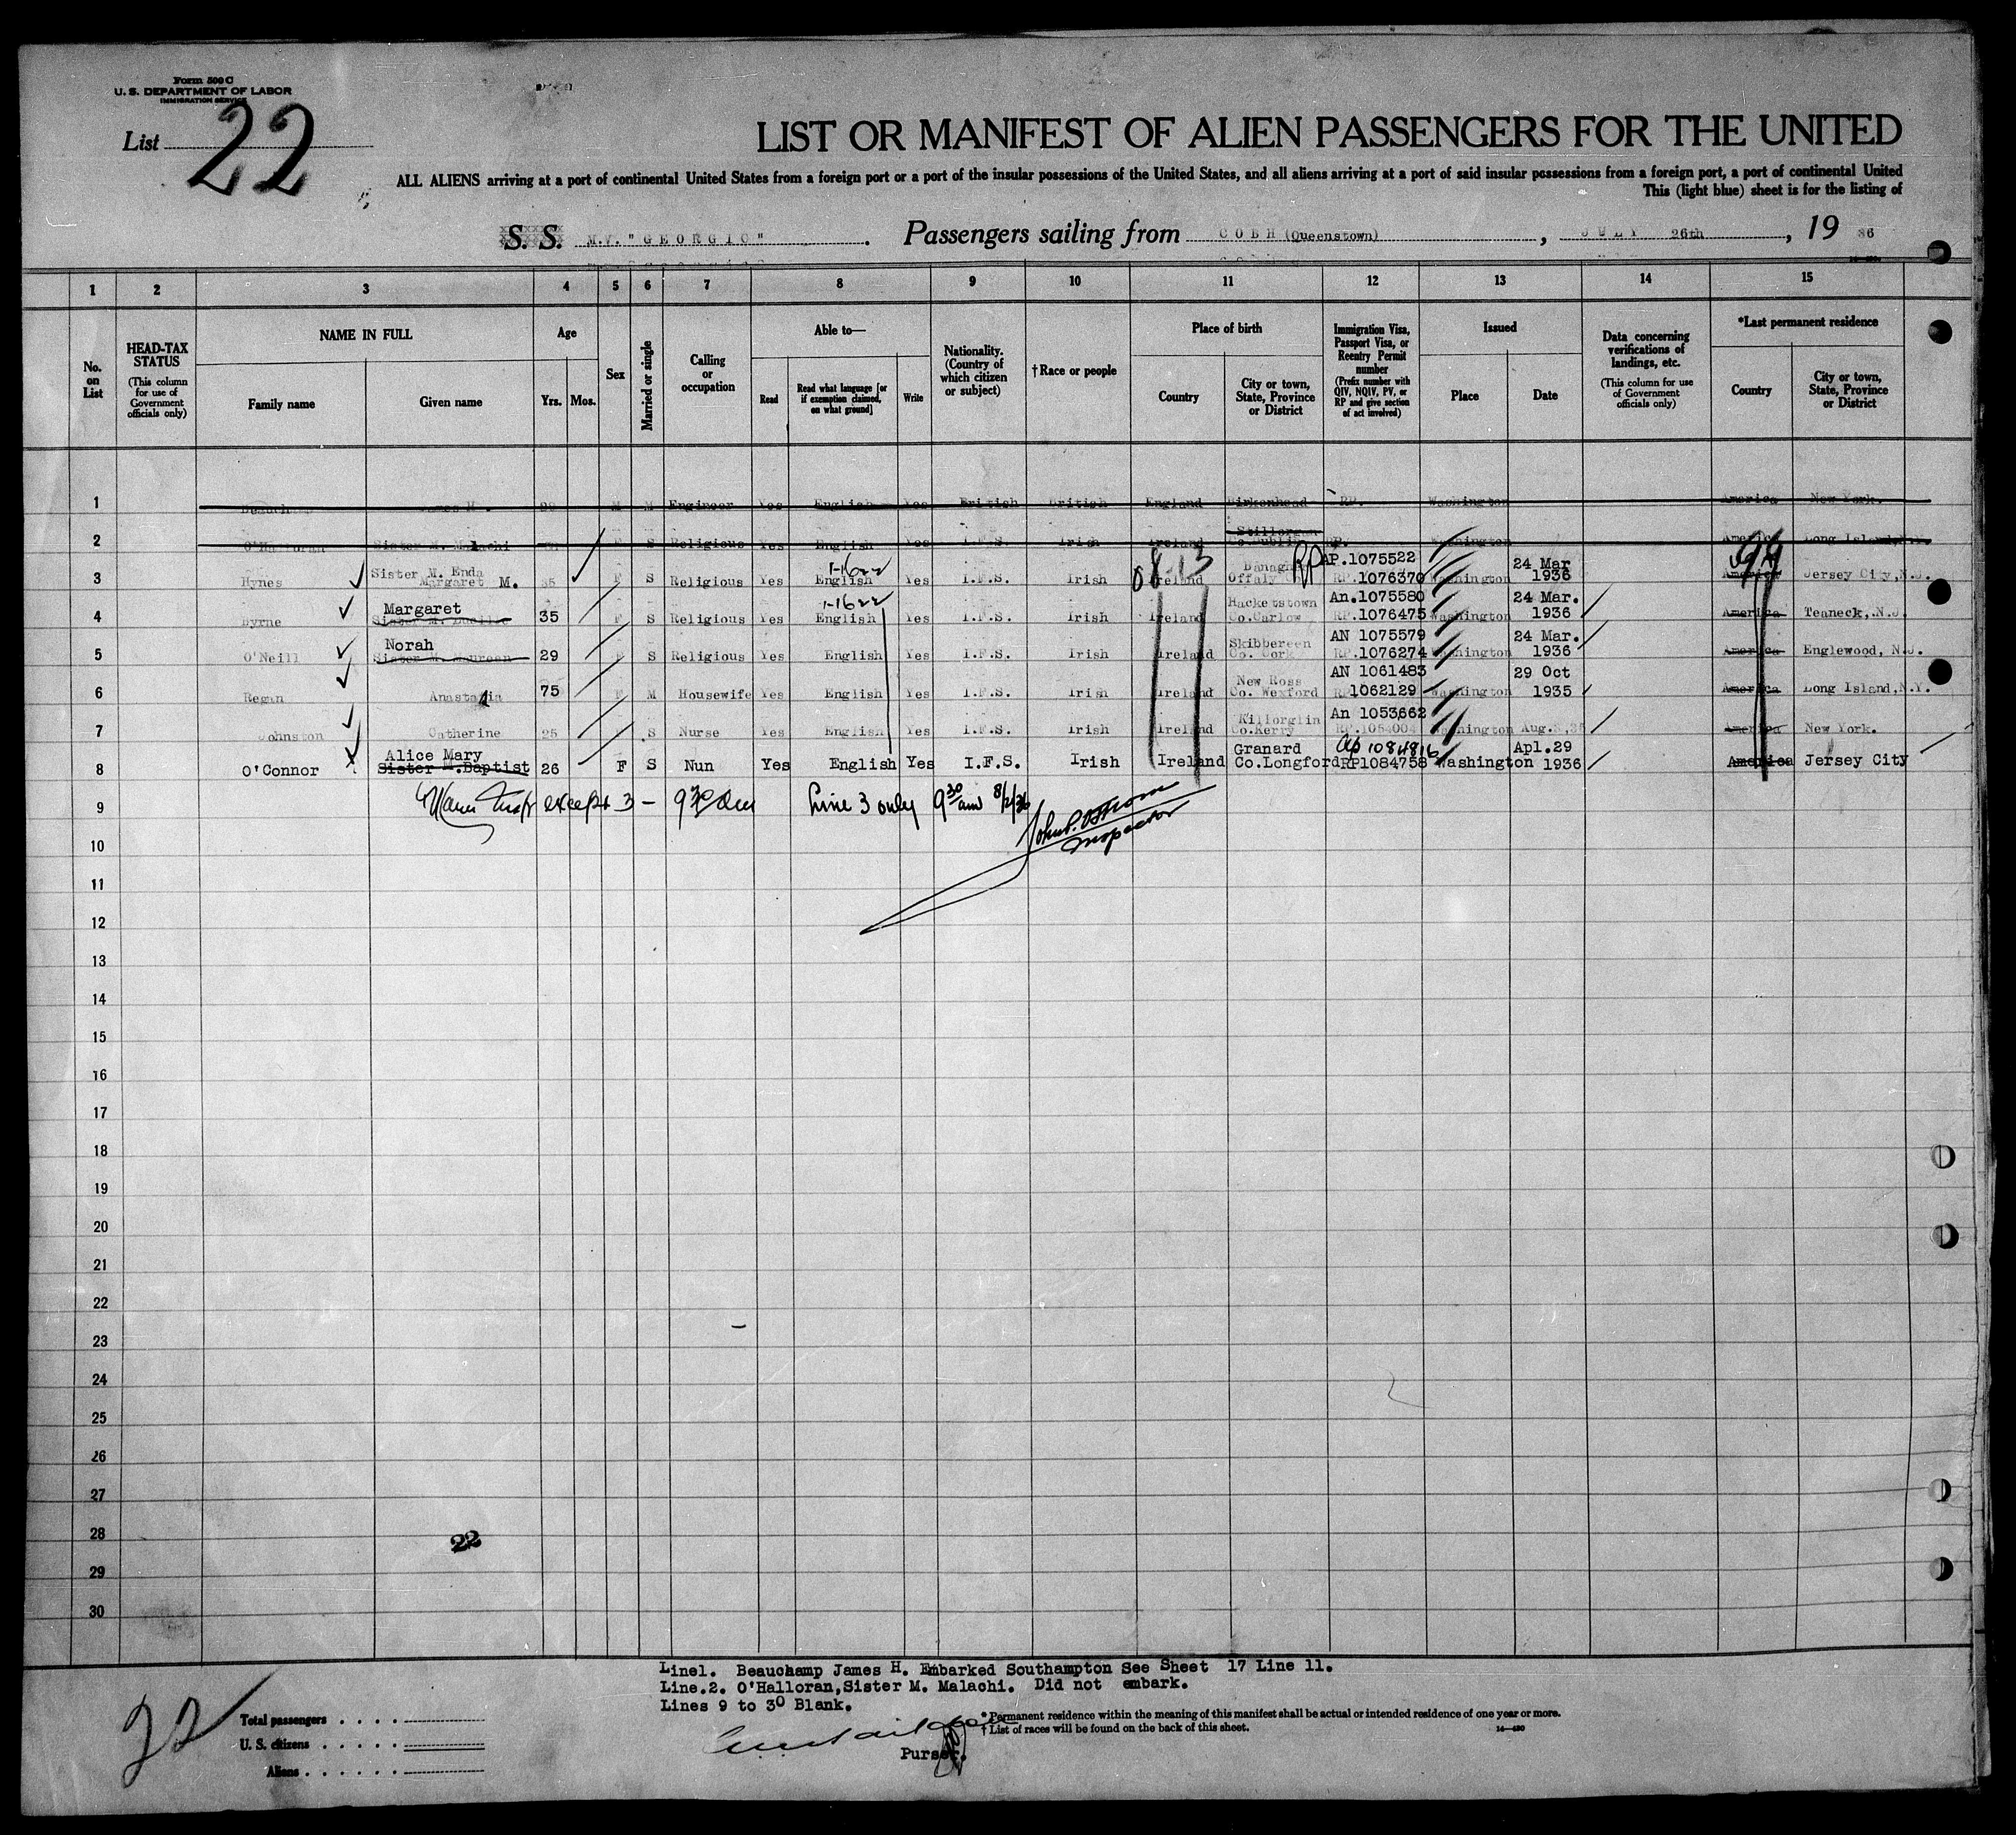 Form 500 C
U. S. DEPARTMENT OF LABOR
IMMIGRATION SERVICE
List 22
LIST OR MANIFEST OF ALIEN PASSENGERS FOR THE UNITED
ALL ALIENS arriving at a port of continental United States from a foreign port or a port of the insular possessions of the United States, and all aliens arriving at a port of said insular possessions from a foreign port, a port of continental United
This (light blue) sheet is for the listing of
S. S. M.V. "GEORGIC" . Passengers sailing from COBH (Queenstown) , JULY 26th , 19 36
1 2 3 4 5 6 7 8 9 10 11 12 13 14 15
No. on List
HEAD-TAX STATUS (This column for use of Government officials only)
NAME IN FULL
Family name
Given name
Age
Yrs. Mos.
Sex
Married or single
Calling or occupation
Able to—
Read
Read what language [or if exemption claimed, on what ground]
Write
Nationality. (Country of which citizen or subject)
† Race or people
Place of birth
Country
City or town, State, Province or District
Immigration Visa, Passport Visa, or Reentry Permit number (Prefix number with QIV, NQIV, PV, or RP and give section of act involved)
Issued
Place
Date
Data concerning verifications of landings, etc. (This column for use of Government officials only)
*Last permanent residence
Country
City or town, State, Province or District
1 James H. M M Engineer Yes English Yes British British England Birkenhead RP. Washington America New York.
Stillorgan
2 O'Halloran Sister M. Malachi F S Religious Yes English Yes I.F.S. Irish Ireland Co.Dublin RP. Washington America Long Island,
Sister M. Enda 1-1622 08-13 Banagher RP AP.1075522 24 Mar 99
3 Hynes Margaret M. 35 F S Religious Yes English Yes I.F.S. Irish Ireland Offaly RP.1076370 Washington 1936 America Jersey City,N.J.
Margaret 1-1622 Hacketstown An.1075580 24 Mar.
4 Byrne Sister M. 35 F S Religious Yes English Yes I.F.S. Irish Ireland Co.Carlow RP.1076475 Washington 1936 America Teaneck,.N.J.
Norah Skibbereen AN 1075579 24 Mar.
5 O'Neill Sister M. Maureen 29 F S Religious Yes English Yes I.F.S. Irish Ireland Co. Cork RP.1076274 Washington 1936 America Englewood, N.J.
New Ross AN 1061483 29 Oct
6 Regan Anastatia 75 F M Housewife Yes English Yes I.F.S. Irish Ireland Co. Wexford RP1062129 Washington 1935 America Long Island,N.Y.
Killorglin An 1053662
7 Johnston Catherine 25 S Nurse Yes English Yes I.F.S. Irish Ireland Co.Kerry RP.1054004 Washington Aug. America New York.
Alice Mary Granard ap 1084816 Apl.29
8 O'Connor Sister M.Baptist 26 F S Nun Yes English Yes I.F.S. Irish Ireland Co.Longford RP1084758 Washington 1936 America Jersey City
9 except 3 — 9 30 am Line 3 only 9 30 am 8/2/36
Inspector
10
11
12
13
14
15
16
17
18
19
20
21
22
23
24
25
26
27
28 22
29
30
Line1. Beauchamp James H. Embarked Southampton See Sheet 17 Line 11.
Line.2. O'Halloran,Sister M. Malachi. Did not embark.
Lines 9 to 30 Blank.
22
Total passengers . . . .
U. S. citizens . . . . .
Aliens . . . . . .
* Permanent residence within the meaning of this manifest shall be actual or intended residence of one year or more.
† List of races will be found on the back of this sheet.
Purser.